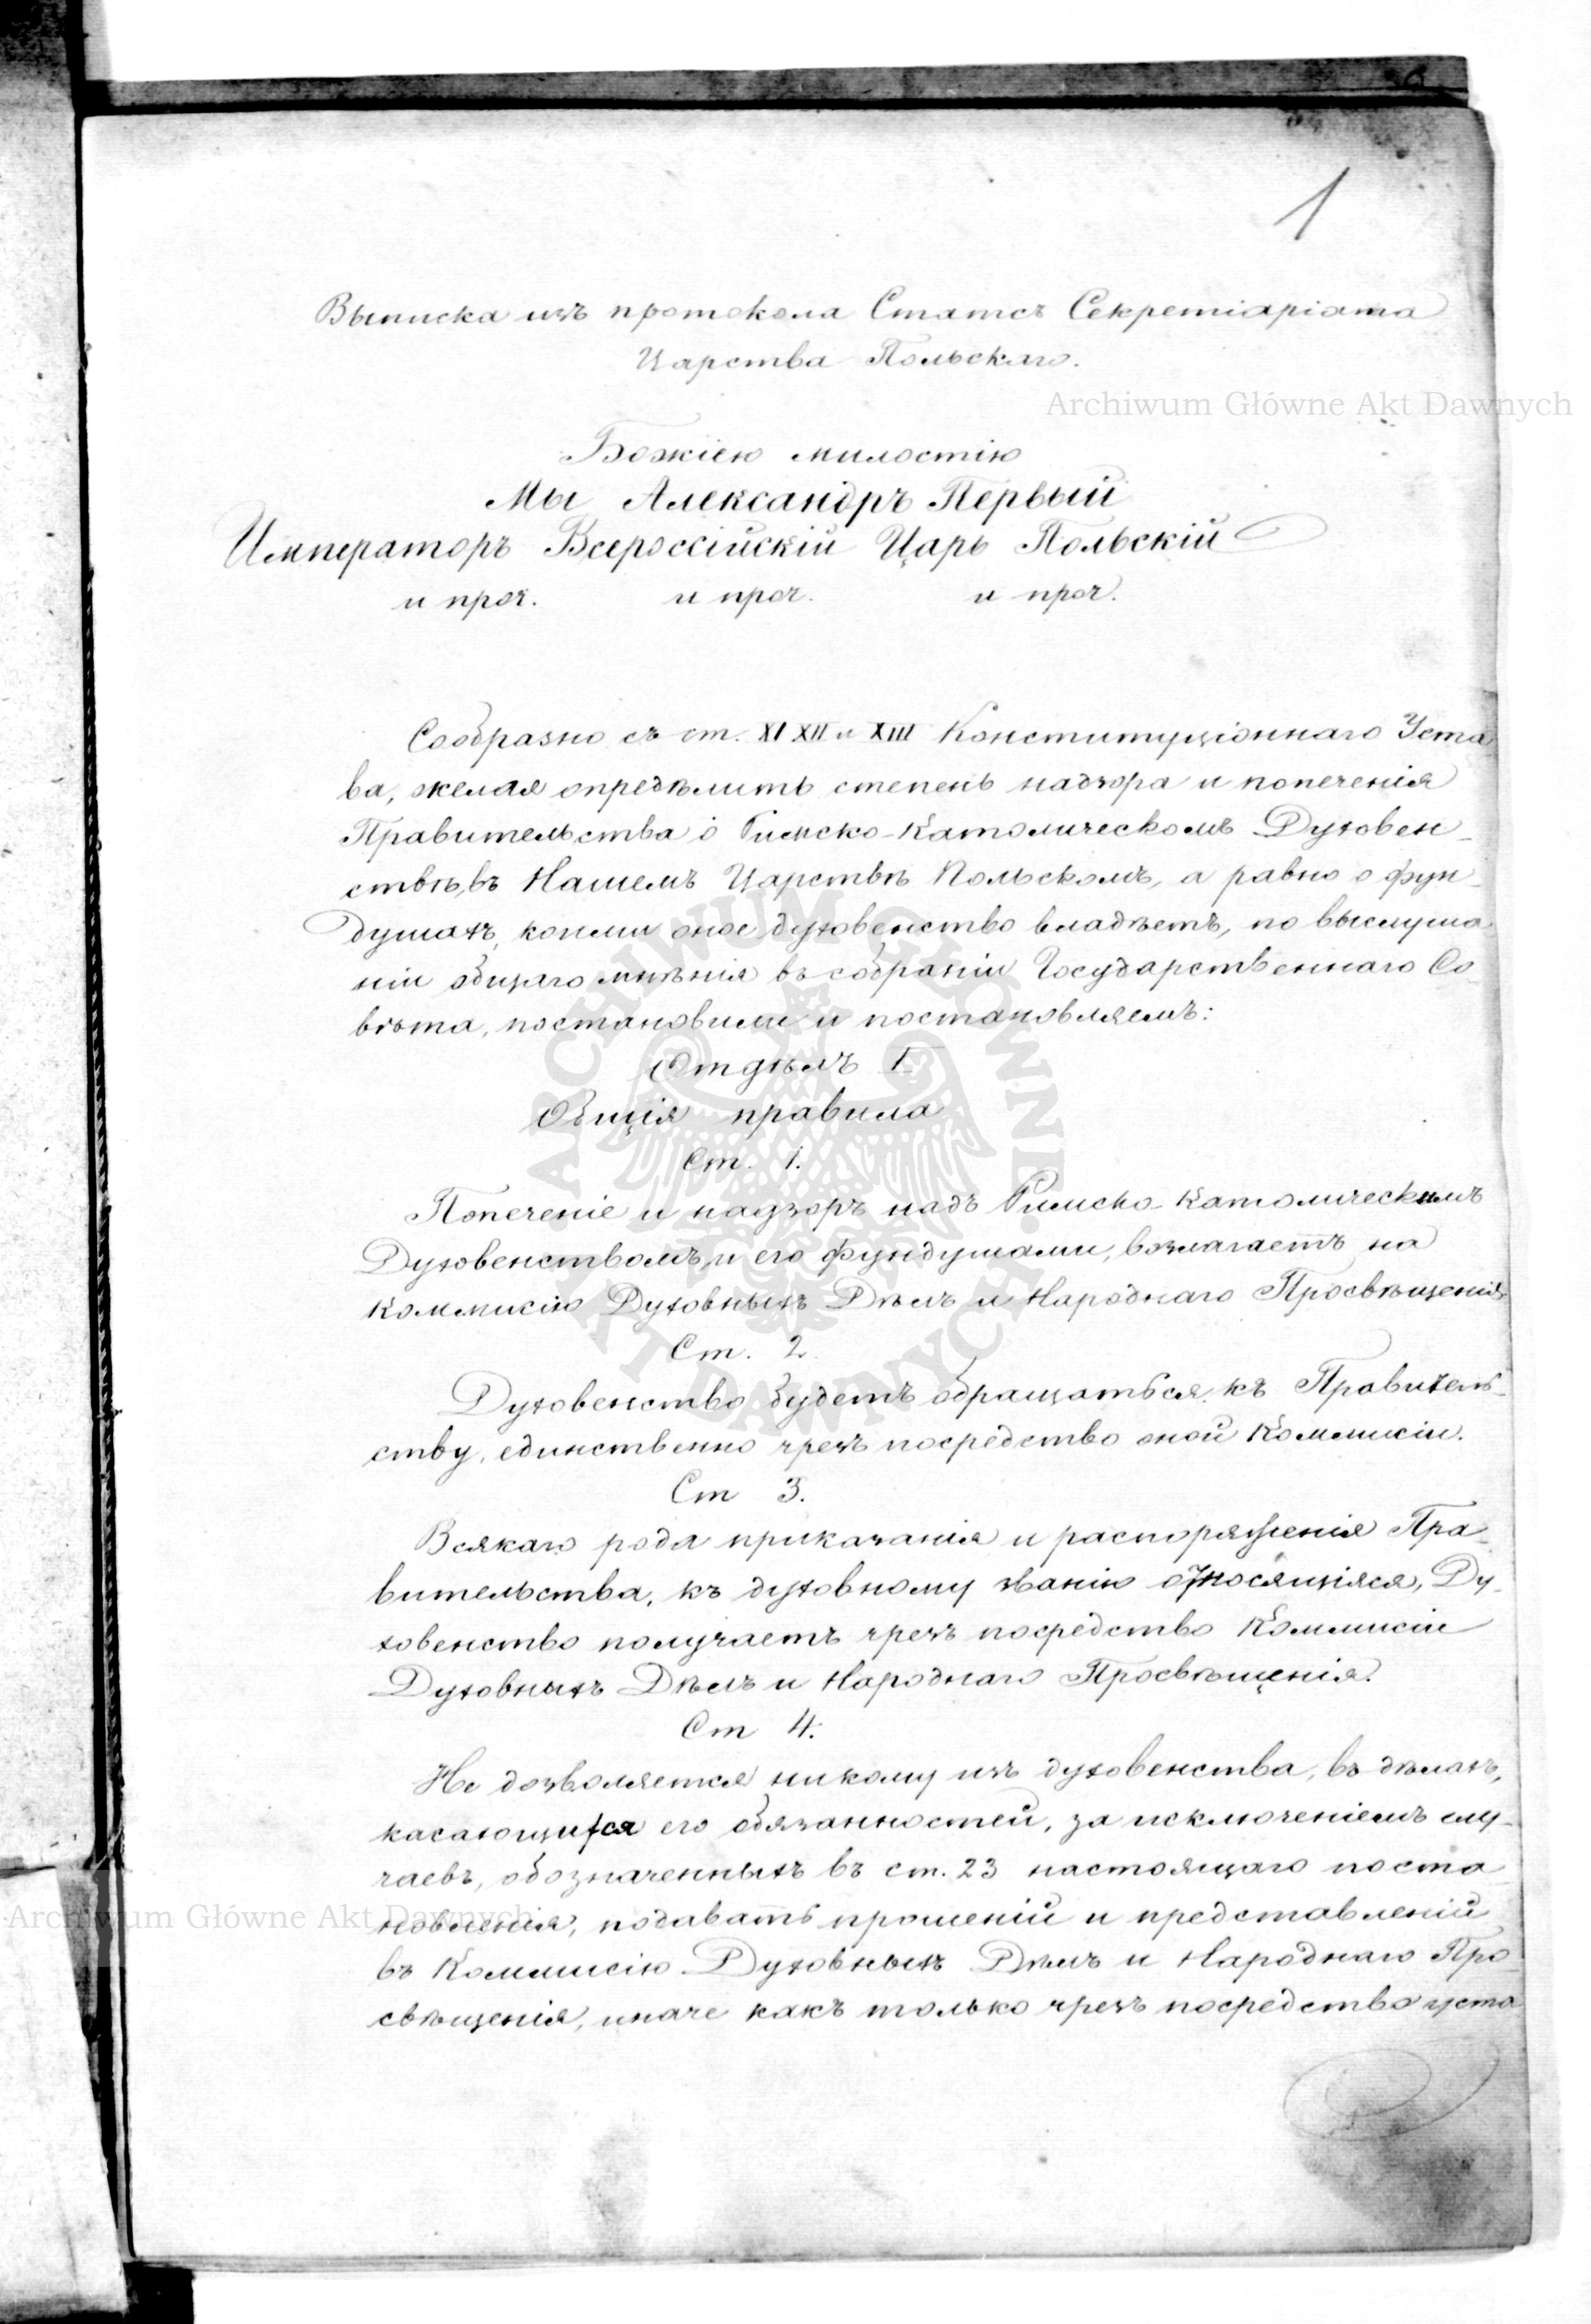 1
Выписка изъ протокола Статсъ Секретіаріата
Царства Польскаго.
Archiwum Główne Akt Dawnych
Божіею милостію
Мы Александръ Первый
Императоръ Всероссійскій Царь Польскій
и проч. и проч. и проч.
Сообразно съ ст. XI XII и XIII Конституціоннаго Уста
ва, желая опредѣлить степень надзора и попеченія
Правительства о Римско-Католическомъ Духовен-
ствѣ, въ Нашемъ Царствѣ Польскомъ, а равно о фун-
душахъ, коими оное духовенство владѣетъ, по выслуша
ніи общаго мнѣнія въ собраніи Государственнаго Со-
вѣта, постановили и постановляемъ:
Отдѣлъ I
Общія правила
Ст. 1.
Попеченіе и надзоръ надъ Римско-Католическимъ
Духовенствомъ, и его фундушами, возлагаетъ на
Коммисію Духовныхъ Дѣлъ и Народнаго Просвѣщенія
Ст. 2.
Духовенство будетъ обращаться къ Правитель-
ству, единственно чрезъ посредство оной Коммисіи.
Ст 3.
Всякаго рода приказанія и распоряженія Пра-
вительства, къ духовному званію относящіяся, Ду-
ховенство получаетъ чрезъ посредство Коммисіи
Духовныхъ Дѣлъ и Народнаго Просвѣщенія.
Ст 4.
Не дозволяется никому изъ духовенства, въ дѣлахъ,
касающихся его обязанностей, за исключеніемъ слу-
чаевъ, обозначенныхъ въ ст. 23 настоящаго поста
новленія, подавать прошеній и представленій
въ Коммисію Духовныхъ Дѣлъ и Народнаго Про
свѣщенія, иначе какъ только чрезъ посредство уста
Archiwum Główne Akt Dawnych
ARCHIWUM GŁÓWNE AKT DAWNYCH